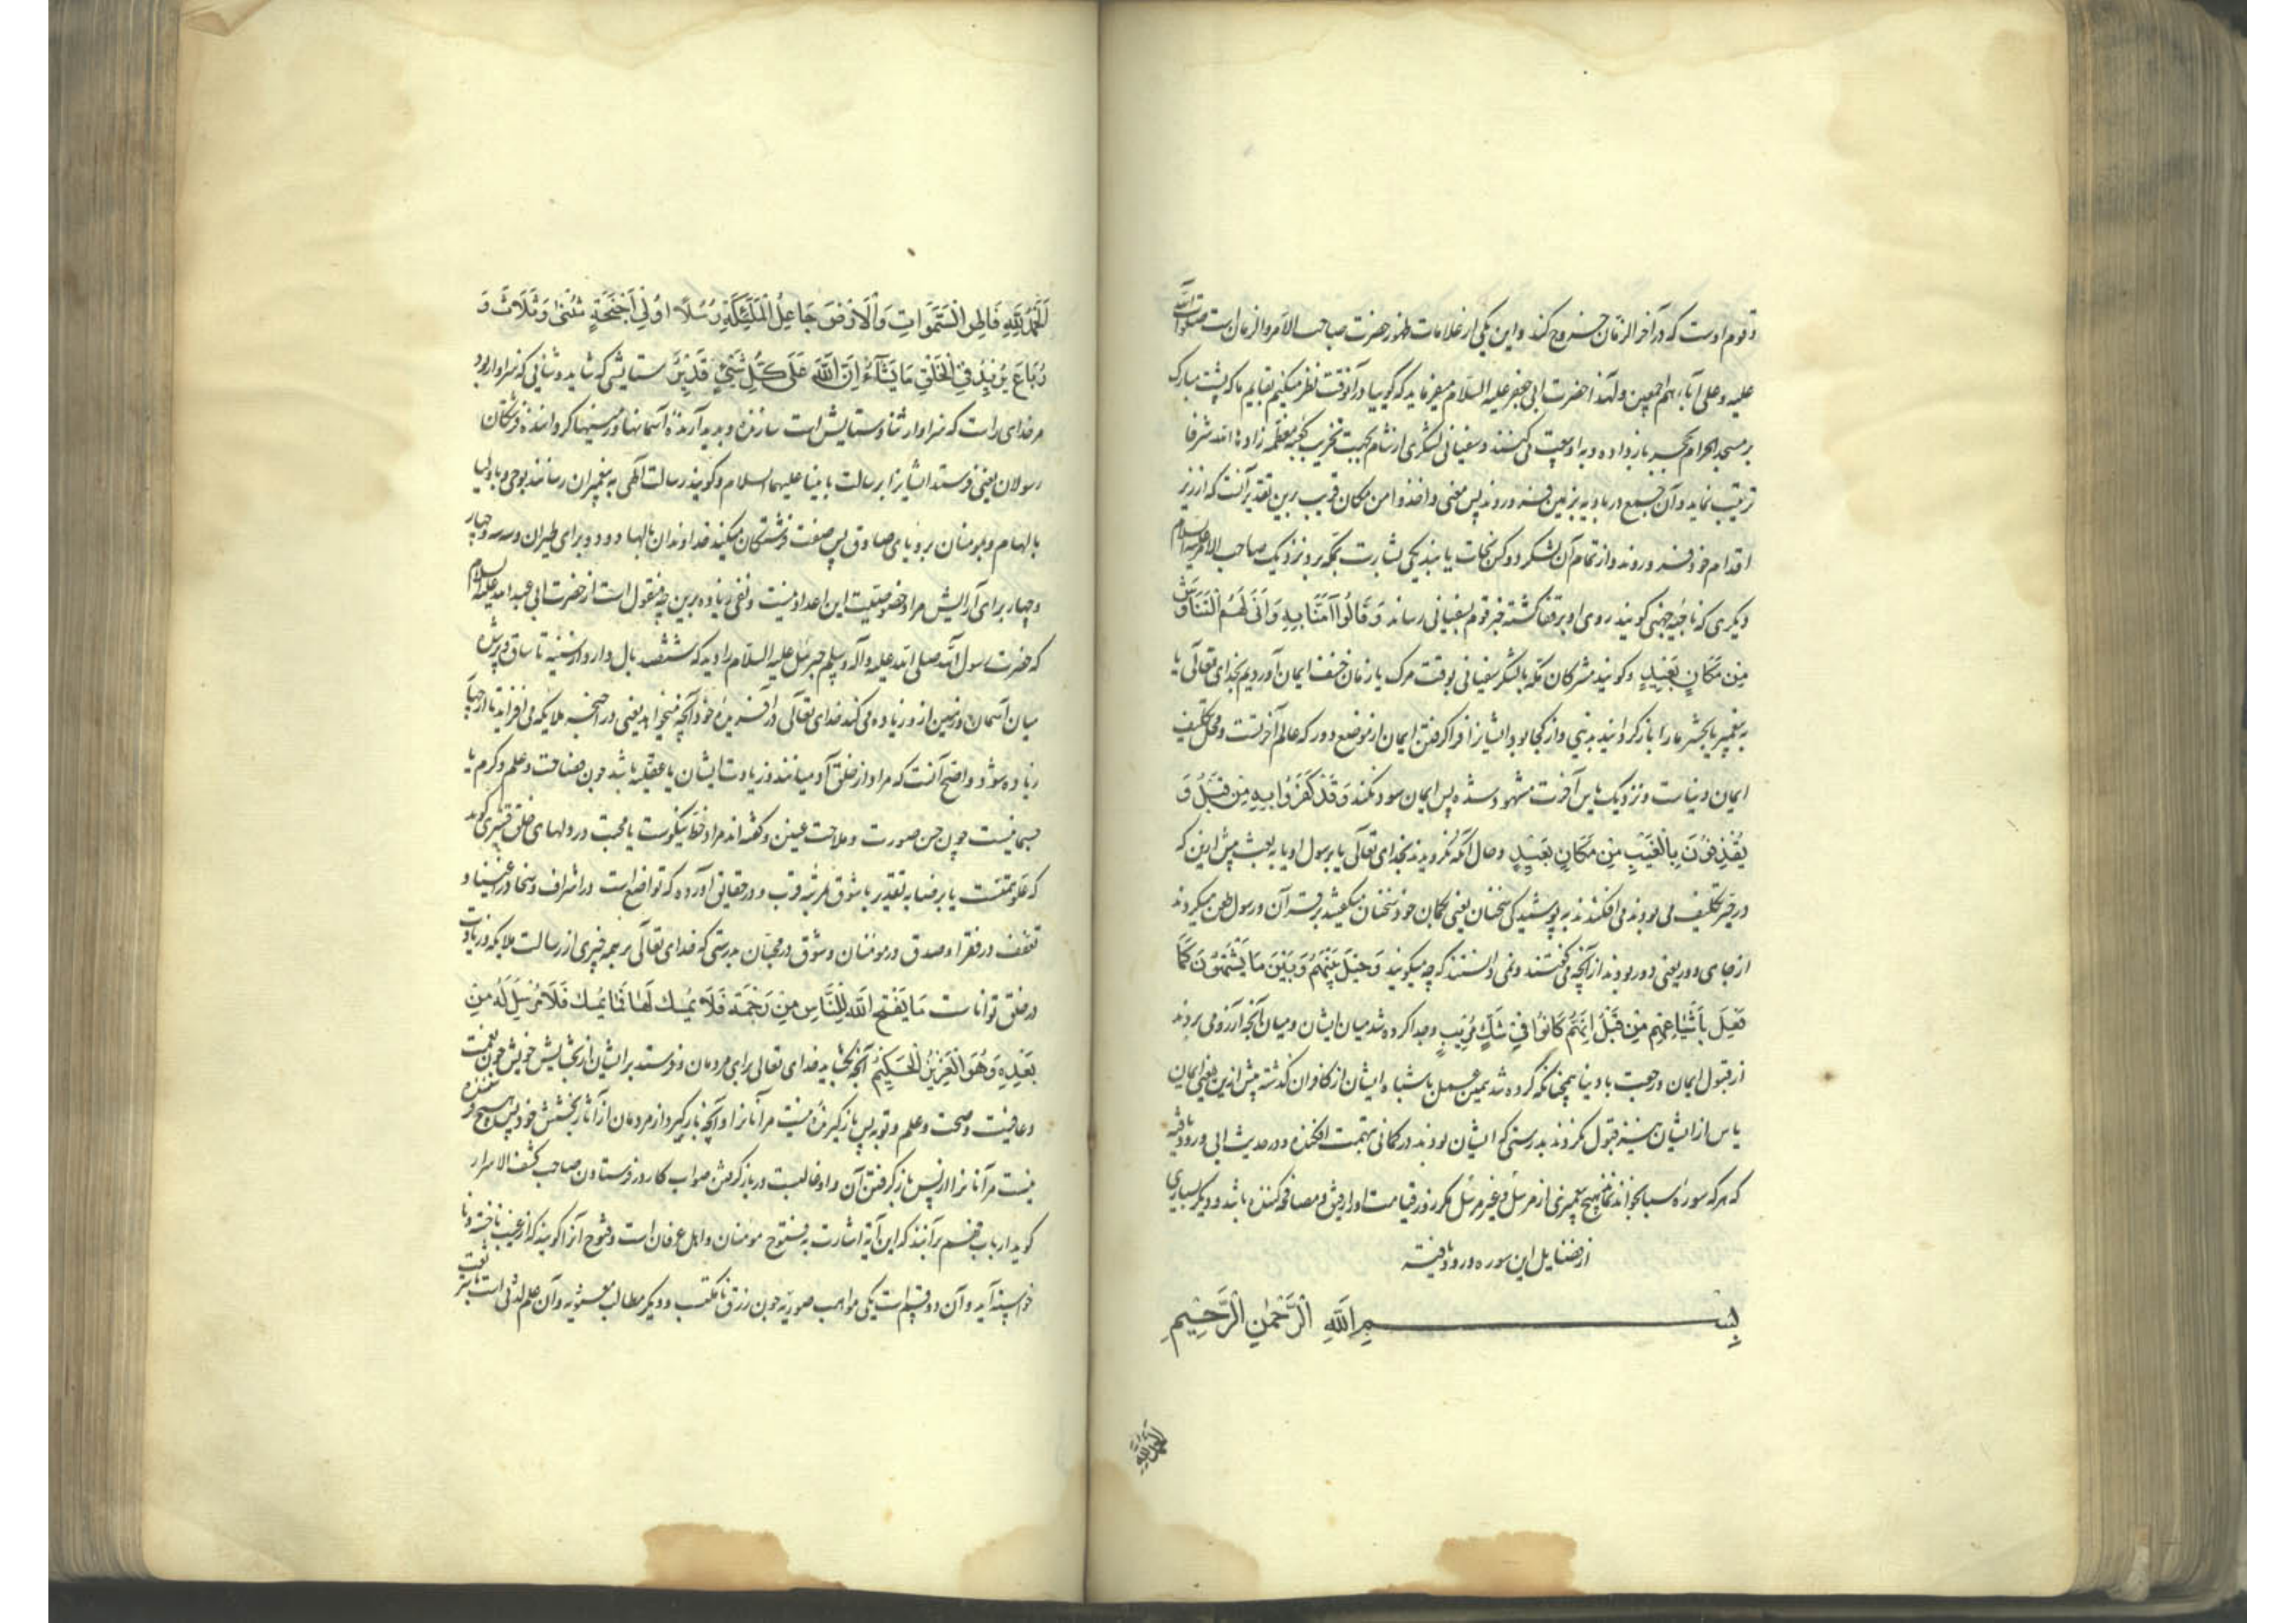 و قوم اوست که در آخر الزمان خروج کند و این یکی از علامات ظهور حضرت صاحب الامر و الزمان است صلوات الله
علیه و علی آبائهم اجمعین و لهذا حضرت ابی جعفر علیه السلام میفرماید که گوییا در آنوقت نظر میکنم بقایم ما که پشت مبارک
بر مسجد الحرام بحجر باز داده و به او بیعت می کنند و سفیانی لشکری از شام بجهت تخریب کعبه معظمه زادها الله شرفا
ترتیب نماید و آن جمع در بادیه بزمین فرو روند پس معنی و اخذوا من مکان قریب برین تقدیر آنست که از زیر
اقدام خود فرو روند و از تمام آن لشکر دو کس نجات یابند یکی بشارت بمکه برد نزدیک صاحب الامر علیه السلام
و دیگری که ناجیه جهنی گویند روی او بر قفا گشته خبر قوم بسفیانی رساند وَقَالُوا آمَنَّا بِهِ وَأَنَّى لَهُمُ التَّنَاوُشُ
مِن مَكَانٍ بَعِيدٍ و گویند مشرکان مکه یا لشکر سفیانی بوقت مرگ یا زمان خسف ایمان آوردیم بخدای تعالی یا
به پیغمبر یا بحشر ما را باز گردانید بدنیی و از کجا بود ایشانرا فرا گرفتن ایمان از موضع دور که عالم آخرتست و محل تکلیف
ایمان دنیاست و نزدیک یاس آخرت مشهود شده پس ایمان سود نکند وَقَدْ كَفَرُوا بِهِ مِن قَبْلُ وَ
يَقْذِفُونَ بِالْغَيْبِ مِن مَكَانٍ بَعِيدٍ و حال آنکه نگرویدند بخدای تعالی یا برسول او یا به بعث پیش ازین که
در حیز تکلیف می بودند می افکندند به پوشیدگی سخنان یعنی بگمان خود سخنان میگفتند بر قرآن و رسول طعن میکردند
از جای دور یعنی دور بودند از آنچه می گفتند و نمی دانستند که چه میگویند وَحِيلَ بَيْنَهُمْ وَبَيْنَ مَا يَشْتَهُونَ كَمَا
فُعِلَ بِأَشْيَاعِهِم مِن قَبْلُ إِنَّهُمْ كَانُوا فِي شَكٍّ مُرِيبٍ و جدا کرده شد میان ایشان و میان آنچه آرزو می بردند
از قبول ایمان و رجعت با دنیا همچنانکه کرده شد همین عمل باشباه ایشان از کافران گذشته پیش ازین یعنی ایمان
یاس از ایشان نیز قبول نکردند بدرستیکه ایشان بودند در گمانی بتهمت افکننده و در حدیث ابی ورود یافته
که هر که سوره سبا بخواند نماند هیچ پیغمبری از مرسل و غیر مرسل مگر روز قیامت او را رفیق و مصافحه کننده باشد و دیگر بسیاری
از فضایل این سوره ورود یافته
بِسْمِ اللهِ الرَّحْمٰنِ الرَّحِيمِ
الحمد لله
اَلْحَمْدُ لِلّٰهِ فَاطِرِ السَّمٰوَاتِ وَالْاَرْضِ جَاعِلِ الْمَلٰئِكَةِ رُسُلًا اُولِي اَجْنِحَةٍ مَثْنٰى وَثُلَاثَ وَ
رُبَاعَ يَزِيدُ فِي الْخَلْقِ مَا يَشَاءُ اِنَّ اللّٰهَ عَلٰى كُلِّ شَيْءٍ قَدِيرٌ ستایشی که شاید و ثنایی که سزاوار بود
مر خدای راست که سزاوار ثنا و ستایش است سازنده و پدید آرنده آسمانها و زمینها گرداننده فرشتگان
رسولان یعنی فرستد ایشانرا برسالت با نبیا علیهم السلام و گویند رسالت الهی به پیغمبران رسانند بوحی و باولیا
بالهام و بمومنان برویای صادق پس صفت فرشتگان میکند خداوندان بالها دو دو برای طیران و سه سه و چهار
و چهار برای آرایش مراد خصوصیت این اعداد نیست و نفی زیاده برین چه منقول است از حضرت ابی عبدالله علیه السلام
که حضرت رسول الله صلی الله علیه و آله و سلم جبرئیل علیه السلام را دید که ششصد بال دارد تا ساق و پرش
میان آسمان و زمین از و زیاده می کند خدای تعالی در آفرینش خود آنچه میخواهد یعنی در اجنحه ملایکه می افزاید تا از چهار
زیاده شود و واضح آنست که مراد از خلق آدمیانند و زیادت ایشان یا عقلیه باشد چون فصاحت و علم و کرم یا
جسمانیست چون حسن صورت و ملاحت عینین و گفته اند مراد خط نیکوست یا محبت در دلهای خلق قشیری گوید
که علو همتست یا رضا به تقدیر یا شوق مرتبه قرب و در حقایق آورده که تواضع است در اشراف و سخا در اغنیا و
تعفف در فقرا و صدق در مومنان و شوق در محبان بدرستی که خدای تعالی بر همه چیزی از رسالت ملایکه و زیادت
در خلق تواناست مَا يَفْتَحِ اللّٰهُ لِلنَّاسِ مِنْ رَحْمَةٍ فَلَا مُمْسِكَ لَهَا وَمَا يُمْسِكْ فَلَا مُرْسِلَ لَهُ مِنْ
بَعْدِهِ وَهُوَ الْعَزِيزُ الْحَكِيمُ آنچه بگشاید خدای تعالی برای مردمان و فرستد بر ایشان از بخشایش خویش چون نعمت
و عافیت و صحت و علم و توبه پس باز گیرنده نیست مر آنانرا و آنچه باز گیرد از مردمان از آثار بخشش خود پس هیچ فرستنده
نیست مر آنانرا از پس باز گرفتن آن و او غالبست در باز گرفتن صواب کار در فرستادن صاحب کشف الاسرار
گوید ارباب فهم برآنند که این آیه اشارت به فتوح مومنان و اهل عرفان است و فتوح آنرا گویند که از غیب ناجسته و نا
خواسته آید و آن دو قسم است یکی مواهب صوریه چون رزق نا مکتسب و دیگر مطالب معنویه و آن علم لدنی است